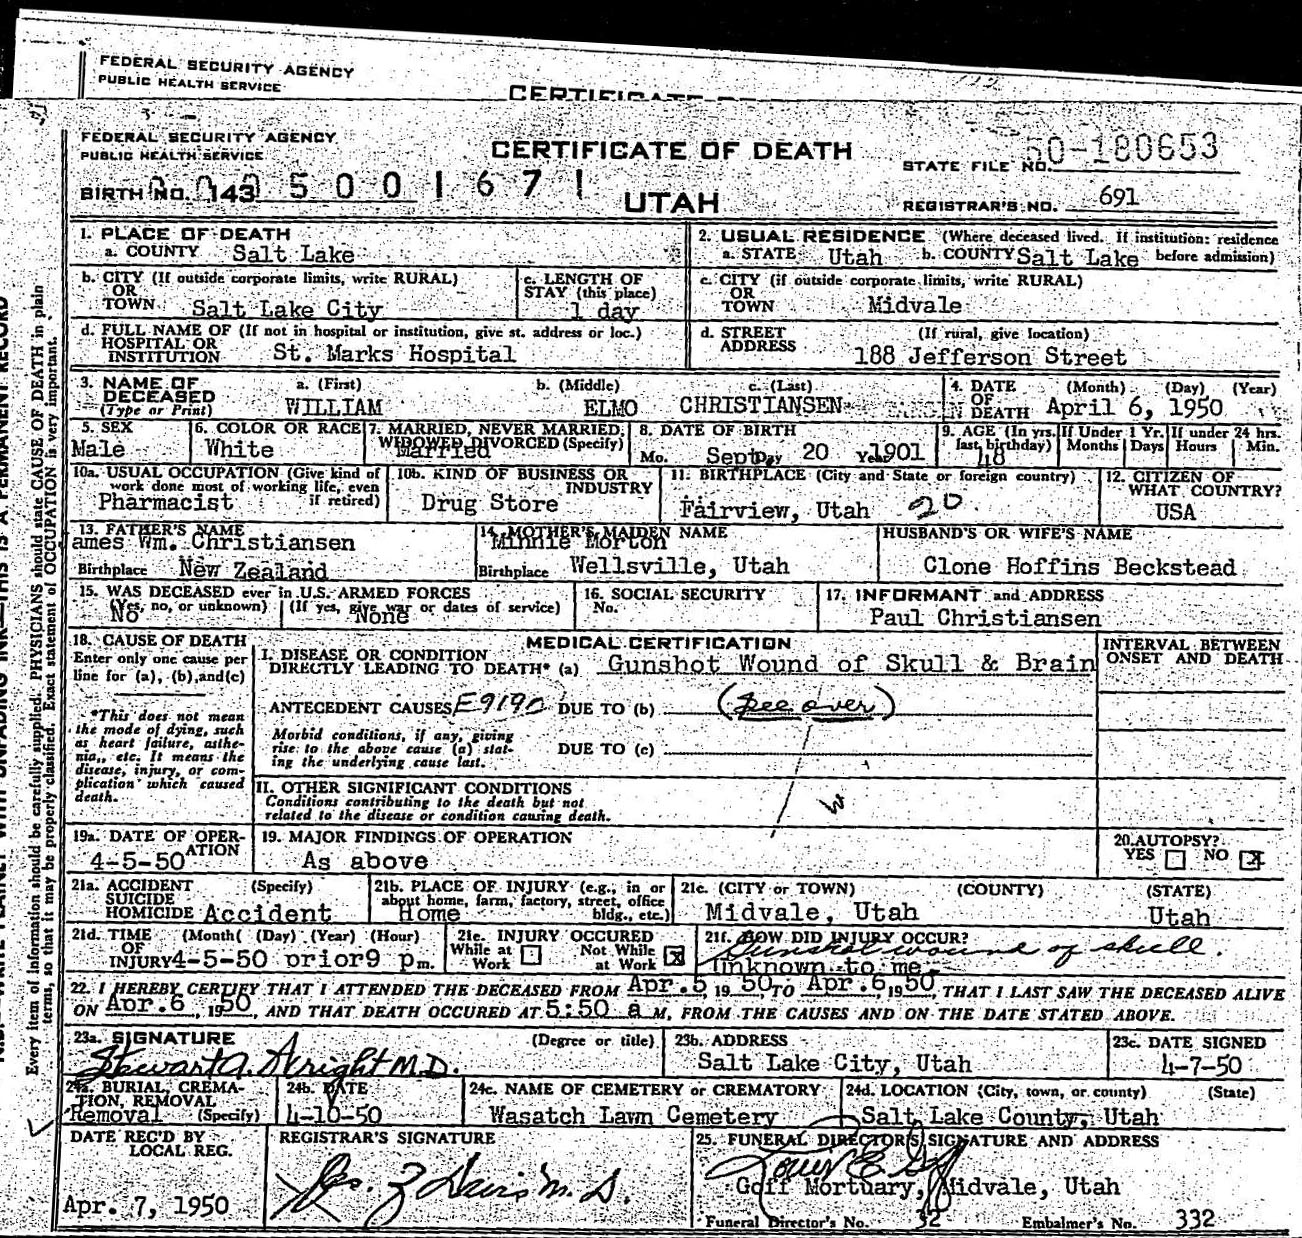 FEDERAL SECURITY AGENCY
PUBLIC HEALTH SERVICE
FEDERAL SECURITY AGENCY
PUBLIC HEALTH SERVICE
CERTIFICATE OF DEATH
STATE FILE NO. 50-180653
BIRTH NO. 143 5001671
UTAH
REGISTRAR'S NO. 691
1. PLACE OF DEATH
a. COUNTY Salt Lake
2. USUAL RESIDENCE (Where deceased lived. If institution: residence before admission)
a. STATE Utah b. COUNTY Salt Lake
b. CITY (If outside corporate limits, write RURAL)
OR
TOWN Salt Lake City
c. LENGTH OF
STAY (this place)
1 day
c. CITY (if outside corporate limits, write RURAL)
OR
TOWN Midvale
d. FULL NAME OF (If not in hospital or institution, give st. address or loc.)
HOSPITAL OR
INSTITUTION St. Marks Hospital
d. STREET (If rural, give location)
ADDRESS 188 Jefferson Street
3. NAME OF DECEASED
(Type or Print)
a. (First) b. (Middle) c. (Last)
WILLIAM ELMO CHRISTIANSEN
4. DATE OF DEATH (Month) (Day) (Year)
April 6, 1950
5. SEX
Male
6. COLOR OR RACE
White
7. MARRIED, NEVER MARRIED,
WIDOWED DIVORCED (Specify)
Married
8. DATE OF BIRTH
Mo. Sept Day 20 Year 1901
9. AGE (In yrs. last birthday)
48
If Under 1 Yr.
Months Days
If under 24 hrs.
Hours Min.
10a. USUAL OCCUPATION (Give kind of
work done most of working life, even
if retired)
Pharmacist
10b. KIND OF BUSINESS OR
INDUSTRY
Drug Store
11. BIRTHPLACE (City and State or foreign country)
Fairview, Utah 20
12. CITIZEN OF
WHAT COUNTRY?
USA
13. FATHER'S NAME
ames Wm. Christiansen
Birthplace New Zealand
14. MOTHER'S MAIDEN NAME
Minnie Morton
Birthplace Wellsville, Utah
HUSBAND'S OR WIFE'S NAME
Clone Hoffins Beckstead
15. WAS DECEASED ever in U.S. ARMED FORCES
(Yes, no, or unknown) (If yes, give war or dates of service)
No None
16. SOCIAL SECURITY
No.
17. INFORMANT and ADDRESS
Paul Christiansen
18. CAUSE OF DEATH
Enter only one cause per
line for (a), (b), and (c)
*This does not mean
the mode of dying, such
as heart failure, asthe-
nia, etc. It means the
disease, injury, or com-
plication which caused
death.
MEDICAL CERTIFICATION
I. DISEASE OR CONDITION
DIRECTLY LEADING TO DEATH* (a) Gunshot Wound of Skull & Brain
ANTECEDENT CAUSES E9190 DUE TO (b) (See over)
Morbid conditions, if any, giving
rise to the above cause (a) stat-
ing the underlying cause last.
DUE TO (c)
II. OTHER SIGNIFICANT CONDITIONS
Conditions contributing to the death but not
related to the disease or condition causing death.
INTERVAL BETWEEN
ONSET AND DEATH
19a. DATE OF OPER-
ATION
4-5-50
19. MAJOR FINDINGS OF OPERATION
As above
20. AUTOPSY?
YES NO X
21a. ACCIDENT (Specify)
SUICIDE
HOMICIDE Accident
21b. PLACE OF INJURY (e.g., in or
about home, farm, factory, street, office
bldg., etc.)
Home
21c. (CITY or TOWN) (COUNTY) (STATE)
Midvale, Utah Utah
21d. TIME (Month) (Day) (Year) (Hour)
OF
INJURY 4-5-50 prior 9 pm.
21e. INJURY OCCURED
While at Work Not While at Work X
21f. HOW DID INJURY OCCUR?
Gunshot wound of skull.
Unknown to me.
22. I HEREBY CERTIFY THAT I ATTENDED THE DECEASED FROM Apr. 5, 1950, TO Apr. 6, 1950, THAT I LAST SAW THE DECEASED ALIVE
ON Apr. 6, 1950, AND THAT DEATH OCCURED AT 5:50 a M, FROM THE CAUSES AND ON THE DATE STATED ABOVE.
23a. SIGNATURE (Degree or title)
Stewart A. Wright M.D.
23b. ADDRESS
Salt Lake City, Utah
23c. DATE SIGNED
4-7-50
24a. BURIAL, CREMA-
TION, REMOVAL
(Specify)
Removal
24b. DATE
4-10-50
24c. NAME OF CEMETERY or CREMATORY
Wasatch Lawn Cemetery
24d. LOCATION (City, town, or county) (State)
Salt Lake County, Utah
DATE REC'D BY
LOCAL REG.
Apr. 7, 1950
REGISTRAR'S SIGNATURE
25. FUNERAL DIRECTOR(S) SIGNATURE AND ADDRESS
Goff Mortuary, Midvale, Utah
Funeral Director's No. 32 Embalmer's No. 332
Every item of information should be carefully supplied. PHYSICIANS should state CAUSE OF DEATH in plain
terms, so that it may be properly classified. Exact statement of OCCUPATION is very important.